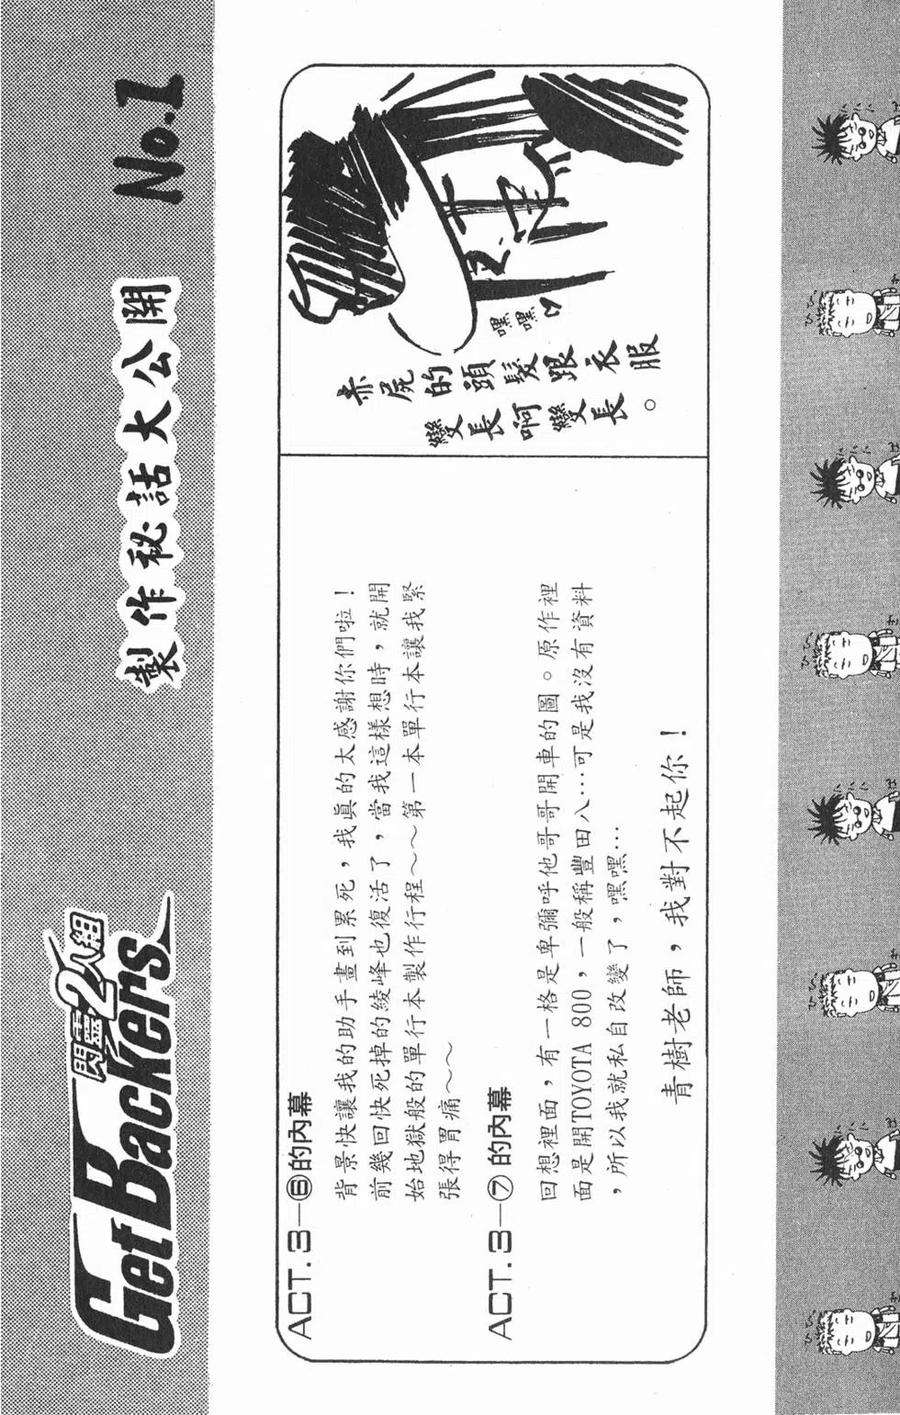 GetBackers
閃靈2人組
製作秘話大公開 No.1
ACT.3—⑥的內幕
背景快讓我的助手畫到累死，我真的太感謝你們啦！
前幾回快死掉的綾峰也復活了，當我這樣想時，就開
始地獄般的單行本製作行程～～第一本單行本讓我緊
張得胃痛～～
ACT.3—⑦的內幕
回想裡面，有一格是卑彌呼他哥哥開車的圖。原作裡
面是開TOYOTA 800，一般稱豐田八…可是我沒有資料
，所以我就私自改變了，嘿嘿…
青樹老師，我對不起你！
嘿嘿♡
赤屍的頭髮跟衣服
變長啊變長。